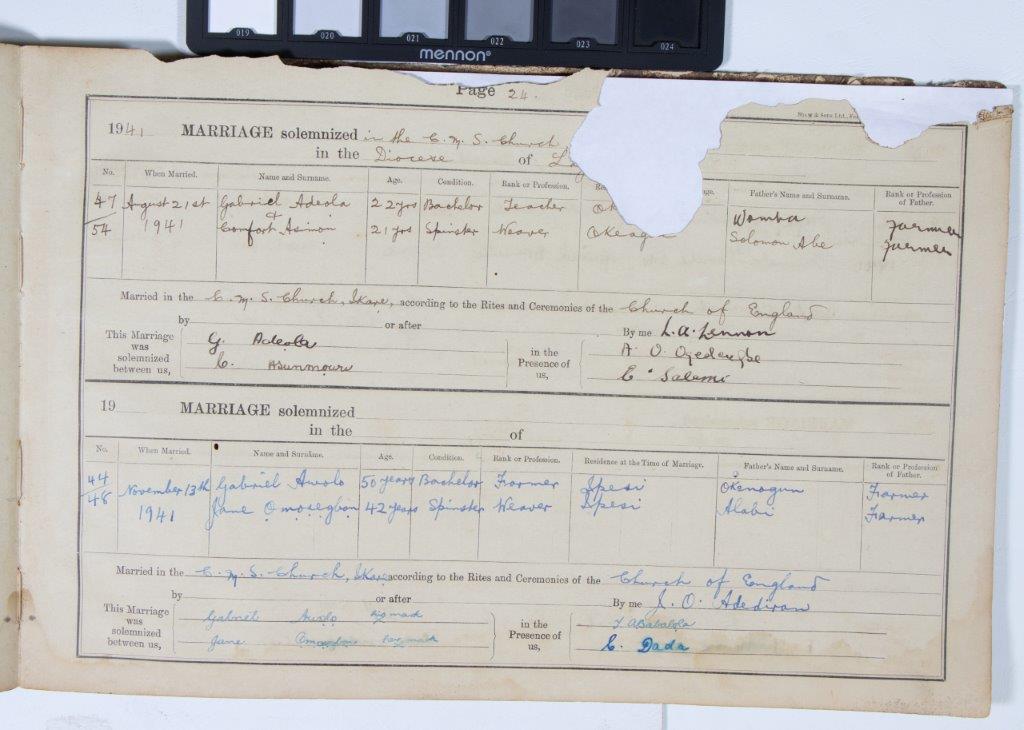 019 020 021 022 023 024
mennon
Page 24.
1941 MARRIAGE solemnized in the C. M. S. Church
in the Diocese of L
No. When Married. Name and Surname. Age. Condition. Rank or Profession. Father's Name and Surname. Rank or Profession of Father.
47 August 21st Gabriel Adeola 22 yrs Bachelor Teacher Ok Womba Farmer
54 1941 & Comfort Asimon 21 yrs Spinster Weaver Okeagu Solomon Abe Farmer
Married in the C. M. S. Church, Ikare, according to the Rites and Ceremonies of the Church of England
by or after By me L. A. Lennon
This Marriage was solemnized between us, G. Adeola in the Presence of us,
C. E. Salami
19 MARRIAGE solemnized
in the of
No. When Married. Name and Surname. Age. Condition. Rank or Profession. Residence at the Time of Marriage. Father's Name and Surname. Rank or Profession of Father.
44 November 13th Gabriel Awolo 50 years Bachelor Farmer Ipesi Okenogun Farmer
48 1941 Jane Omosegbon 42 years Spinster Weaver Ipesi Alabi Farmer
Married in the C. M. S. Church, Ikare according to the Rites and Ceremonies of the Church of England
by or after By me J. O. Adediran
This Marriage was solemnized between us, Gabriel Awolo his mark in the Presence of us, Babalola
Jane her mark E. Dada